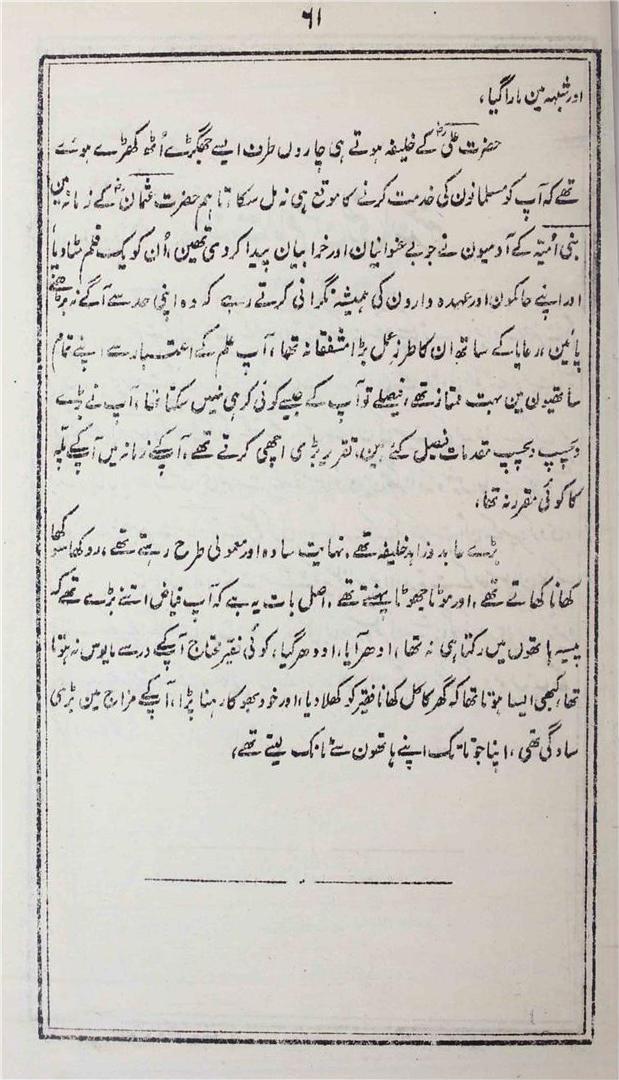 ۶۱
اور شبہہ مین مارا گیا،
حضرت علیؓ کے خلیفہ ہوتے ہی چاروں طرف ایسے جھگڑے اُٹھ کھڑے ہوئے
تھے کہ آپ کو مسلمانون کی خدمت کرنے کا موقع ہی نہ مل سکا تاہم حضرت عثمانؓ کے زمانہ مین
بنی اُمیّہ کے آدمیون نے جو بے عنوانیان اور خرابیان پیدا کردی تھین، اُن کو یک قلم مٹا دیا
اور اپنے حاکمون اور عہدہ دارون کی ہمیشہ نگرانی کرتے رہے کہ وہ اپنی حد سے آگے نہ بڑھنے
پائین، رعایا کے ساتھ ان کا طرز عمل بڑا مشفقانہ تھا، آپ علم کے اعتبار سے اپنے تمام
ساتھیون مین بہت ممتاز تھے، فیصلے تو آپ کے جیسے کوئی کر ہی نہیں سکتا تھا، آپ نے بڑے
دلچسپ دلچسپ مقدمات فیصل کئے ہین، تقریر بڑی اچھی کرتے تھے، آپکے زمانہ میں آپکے پلّہ
کا کوئی مقرر نہ تھا،
بڑے عابد و زاہد خلیفہ تھے، نہایت سادہ اور معمولی طرح رہتے تھے، روکھا سوکھا
کھانا کھاتے تھے، اور موٹا جھوٹا پہنتے تھے، اصل بات یہ ہے کہ آپ فیاض اتنے بڑے تھے کہ
پیسہ ہاتھوں میں رکتا ہی نہ تھا، ادھر آیا، اودھر گیا، کوئی فقیر محتاج آپکے در سے مایوس نہ ہوتا
تھا، کبھی ایسا ہوتا تھا کہ گھر کا کل کھانا فقیر کو کھلا دیا، اور خود بھوکا رہنا پڑا، آپکے مزاج مین بڑی
سادگی تھی، اپنا جوتا تک اپنے ہاتھون سے ٹانک لیتے تھے،